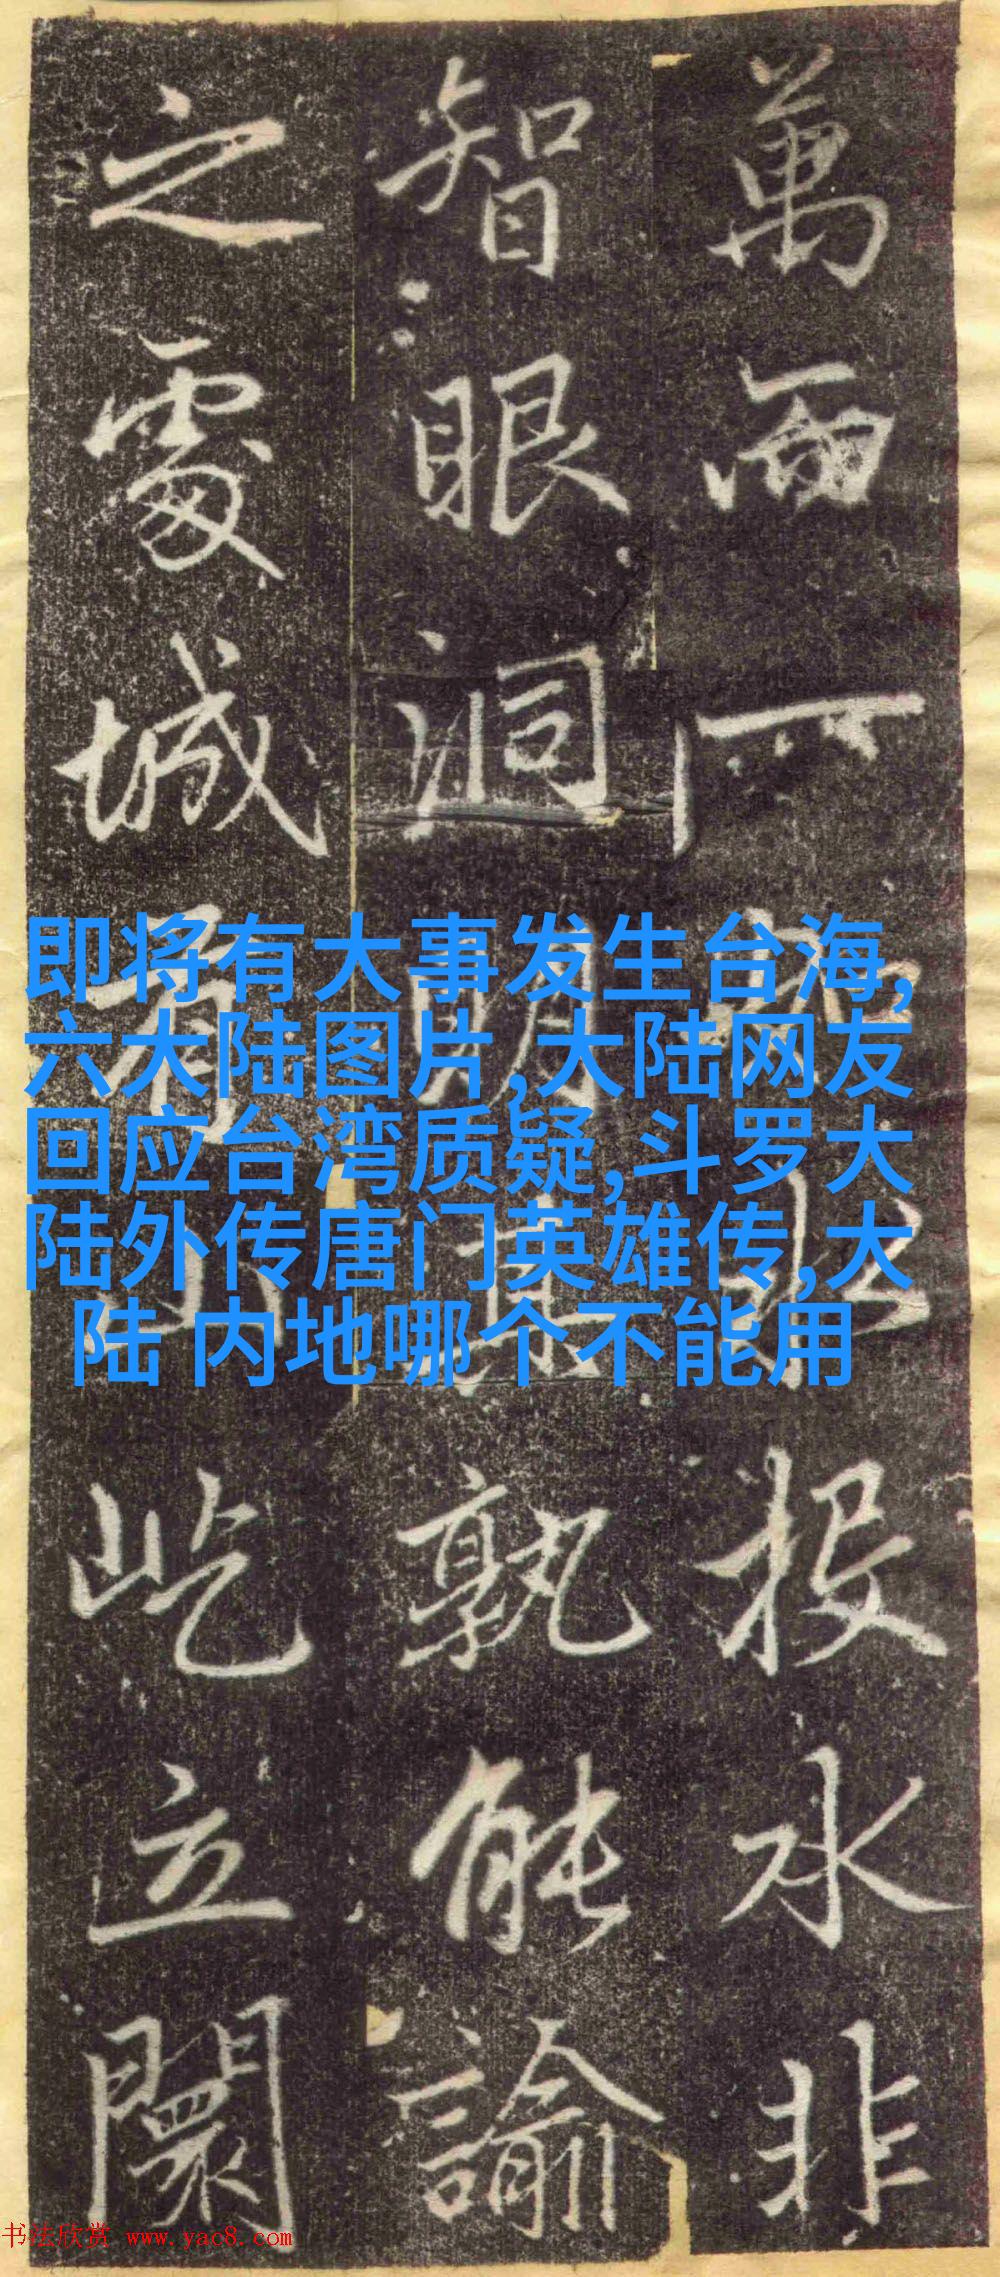 萬而一水投水非
智眼洞明孰能諭
之處城有山屹立闤
即将有大事发生台海,
六大陆图片,大陆网友
回应台湾质疑,斗罗大
陆外传唐门英雄传,大
陆 内地哪个不能用
书法欣赏 www.yac8.com